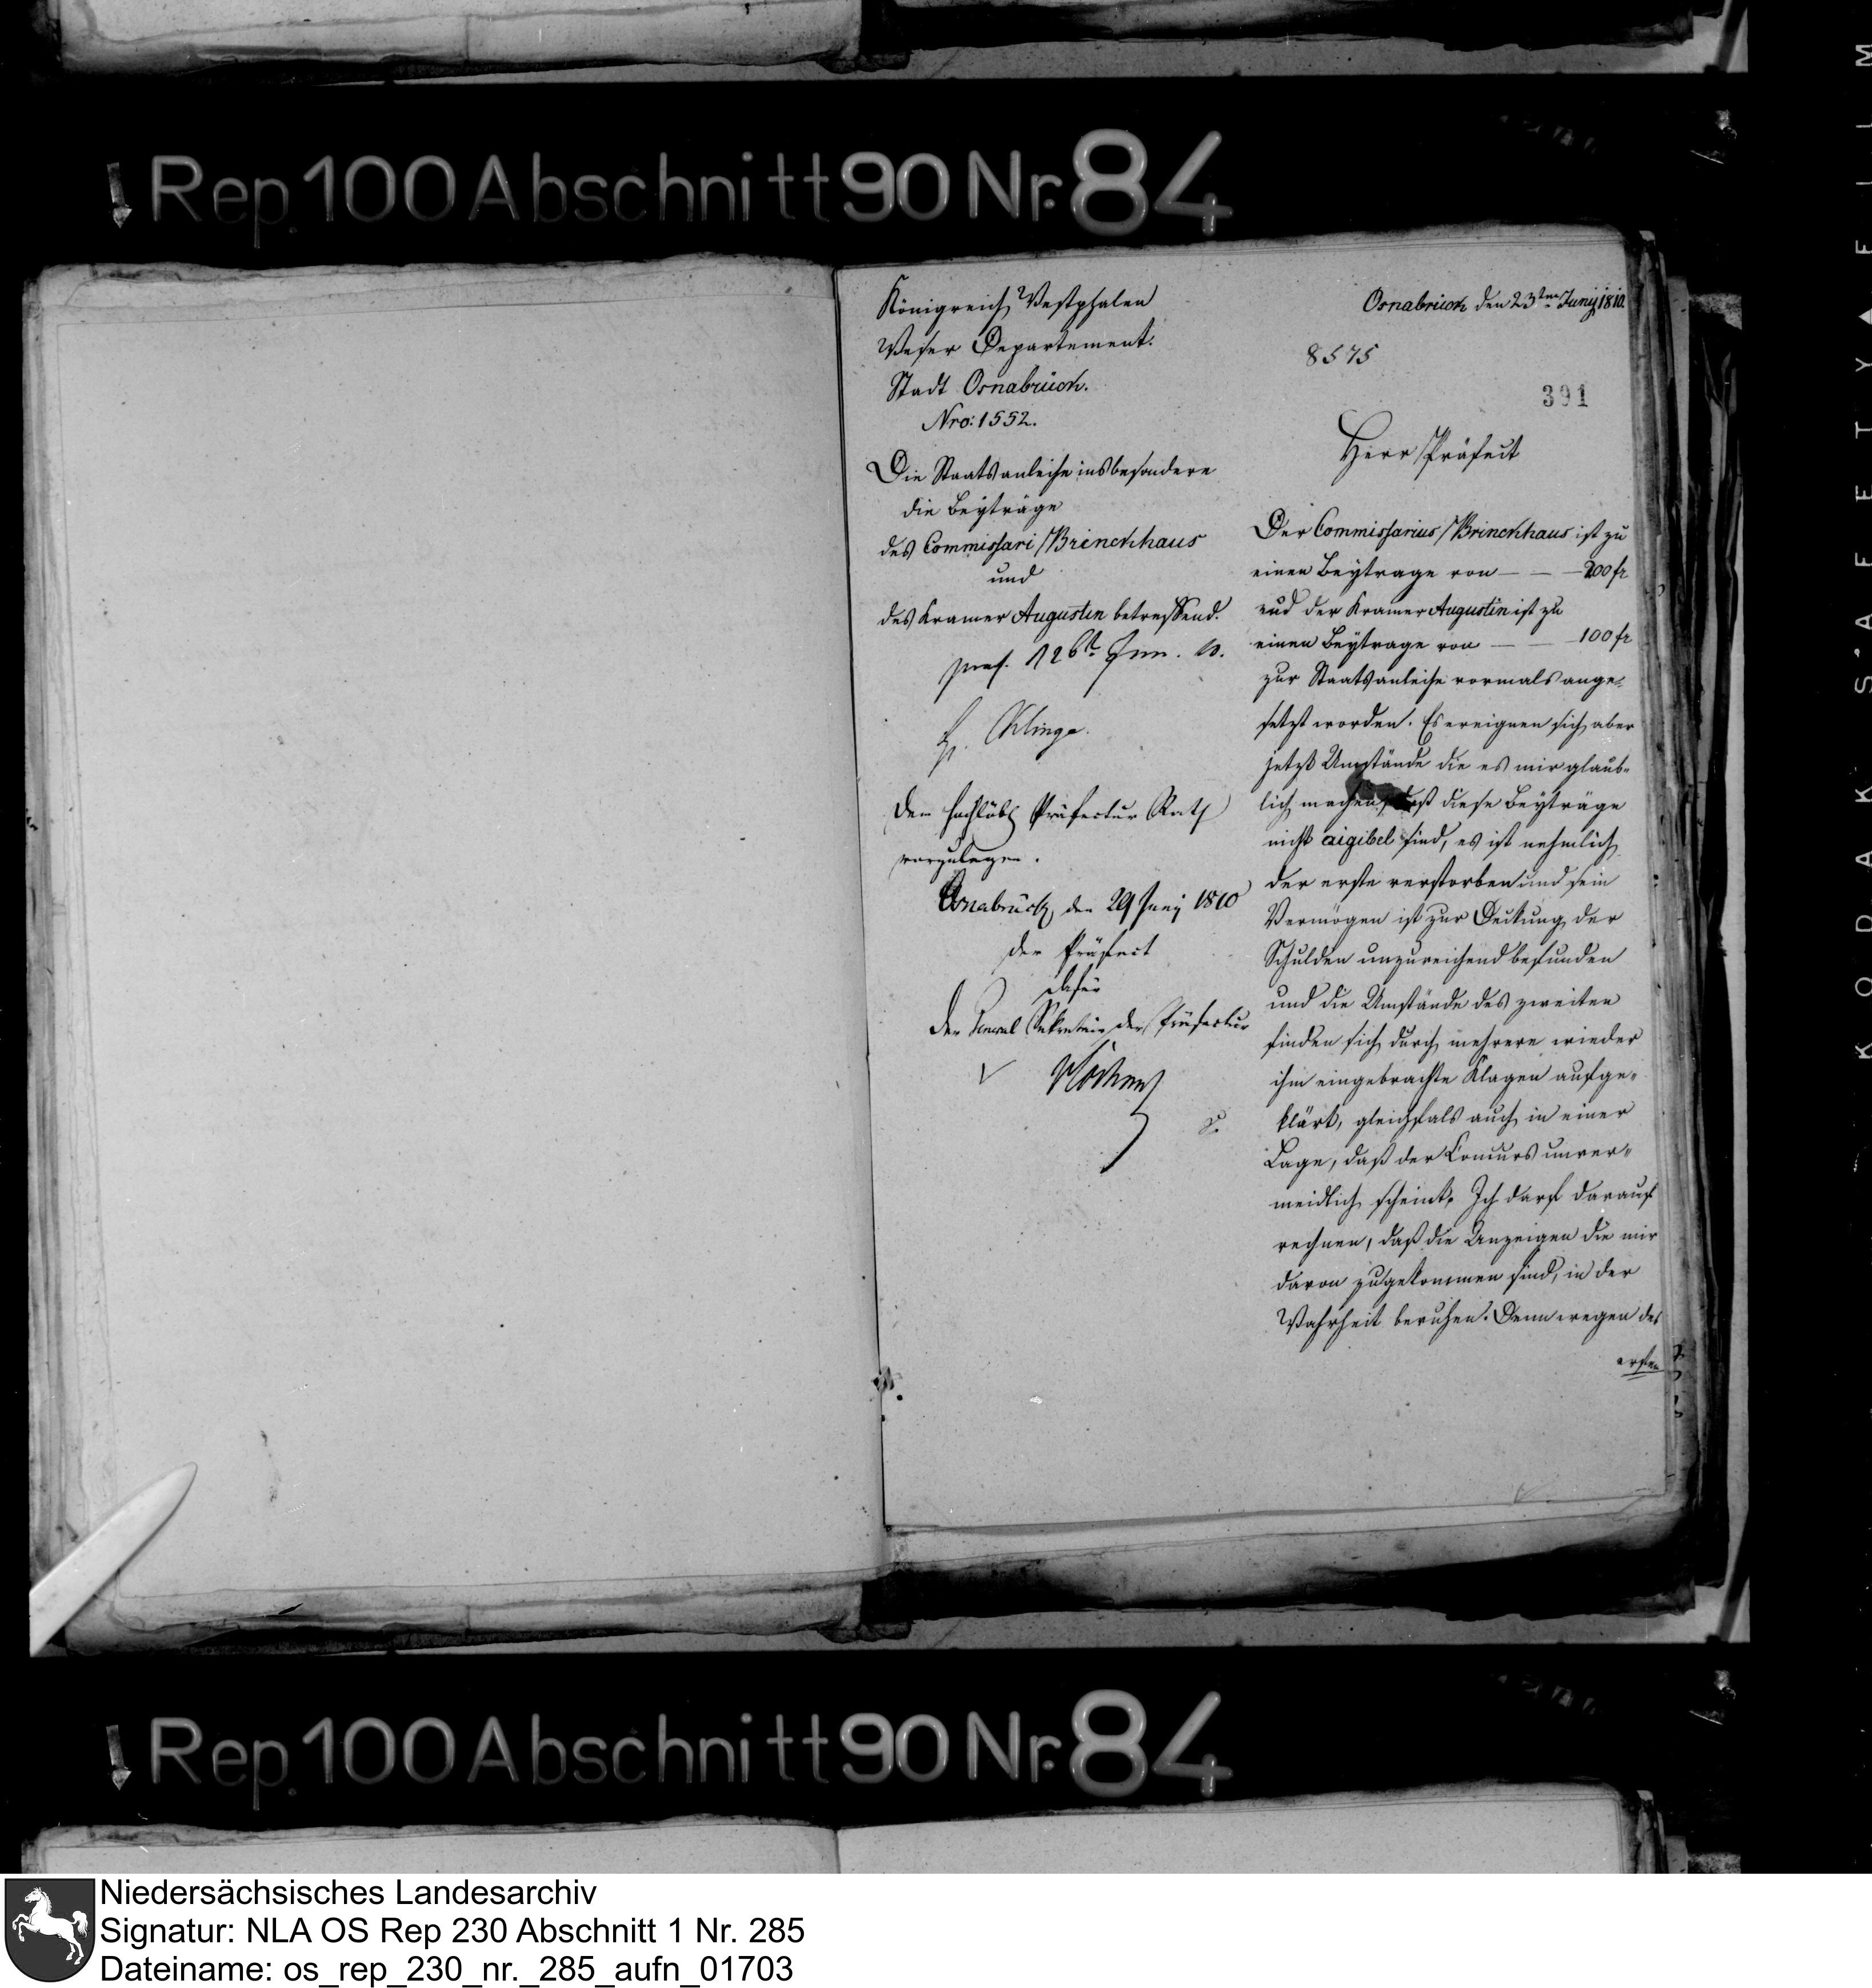 Rep. 100 Abschnitt 90 Nr. 84
Königreich Westphalen
Weser Departement.
Stadt Osnabrück.
Nro: 1552.
Die Staatsanleihe insbesondere
die Beyträge
des Commissari Brinckhaus
und
des Kramer Augustin betreffend.
praes. 26t Jun. 10.
H. Klinge.
Dem hochlöbl Präfectur Rath
vorzulegen.
Osnabrück, den 29 Juny 1810
der Präfect
dafür
der General Sekretair der Präfectur
Osnabrück den 23ten Juny 1810.
8575
391
Herr Präfect
Der Commissarius Brinckhaus ist zu
einen Beytrage von — — 200 fr
und der Kramer Augustin ist zu
einen Beytrage von — — 100 fr
zur Staatsanleihe vormals ange-
setzt worden. Es ereignen sich aber
jetzt Umstände die es mir glaub-
lich machen, daß diese Beyträge
nicht exigibel sind, es ist nehmlich
der erste verstorben und sein
Vermögen ist zur Deckung der
Schulden unzureichend befunden
und die Umstände des zweiten
finden sich durch mehrere wieder
ihm eingebrachte Klagen aufge-
klärt, gleichfals auch in einer
Lage, daß der Concurs unver-
meidlich scheint. Ich darf darauf
rechnen, daß die Anzeigen die mir
davon zugekommen sind, in der
Wahrheit beruhen. Denn wegen des
ersten
Rep. 100 Abschnitt 90 Nr. 84
KODAK SAFETY FILM
Niedersächsisches Landesarchiv
Signatur: NLA OS Rep 230 Abschnitt 1 Nr. 285
Dateiname: os_rep_230_nr._285_aufn_01703